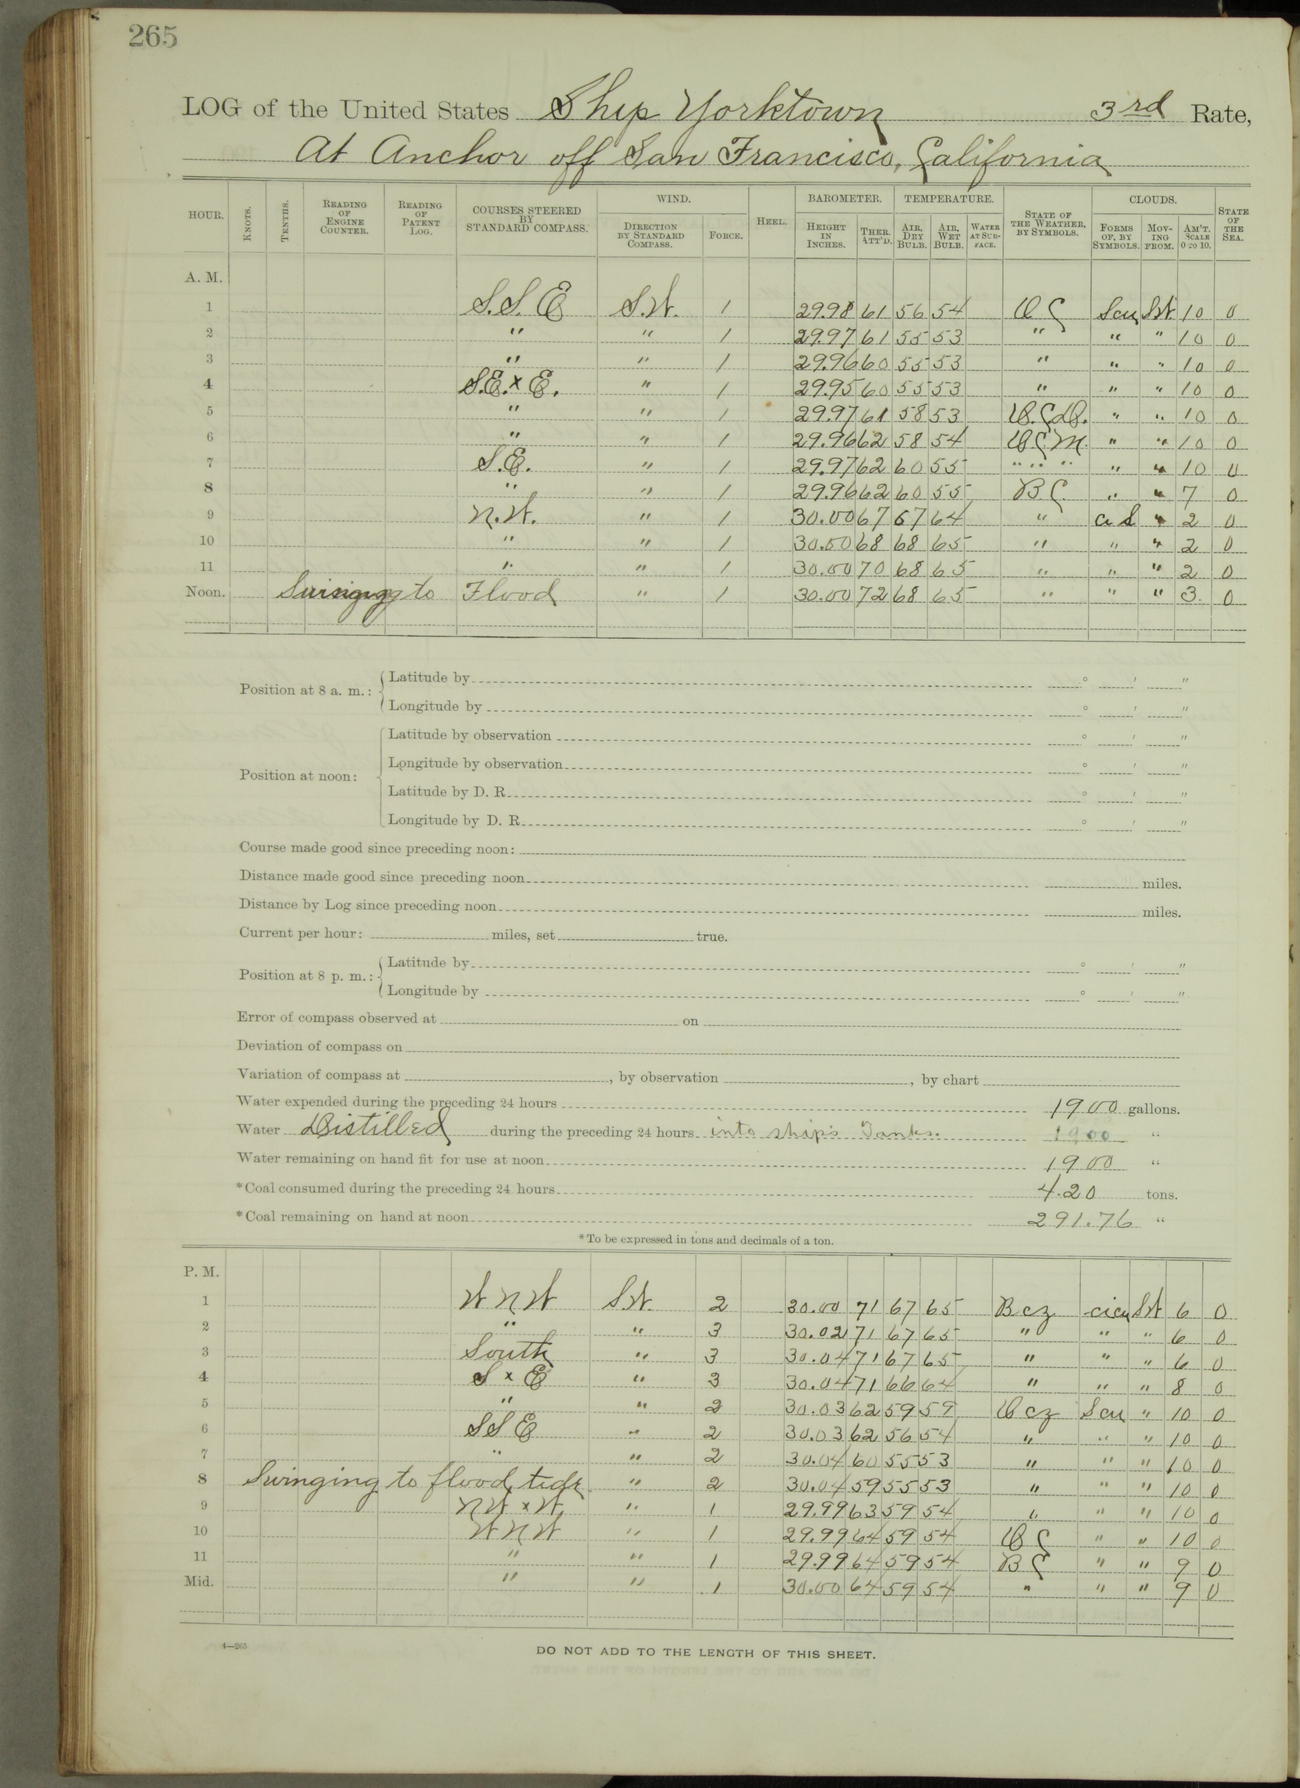 265
LOG of the United States Ship Yorktown 3rd Rate,
At Anchor off San Francisco, California
HOUR. KNOTS. TENTHS. READING OF ENGINE COUNTER. READING OF PATENT LOG. COURSES STEERED BY STANDARD COMPASS. WIND. DIRECTION BY STANDARD COMPASS. FORCE. HEEL. BAROMETER. HEIGHT IN INCHES. THER. ATT'D. TEMPERATURE. AIR, DRY BULB. AIR, WET BULB. WATER AT SURFACE. STATE OF THE WEATHER, BY SYMBOLS. CLOUDS. FORMS OF, BY SYMBOLS. MOVING FROM. AM'T. SCALE 0 TO 10. STATE OF THE SEA.
A. M.
1 S.S.E S.W. 1 29.98 61 56 54 O C Scu SW 10 0
2 " " 1 29.97 61 55 53 " " " 10 0
3 " " 1 29.96 60 55 53 " " " 10 0
4 S.E. x E. " 1 29.95 60 55 53 " " " 10 0
5 " " 1 29.97 61 58 53 " " 10 0
6 " " 1 29.96 62 58 54 " " 10 0
7 S.E. " 1 29.97 62 60 55 " " " " " 10 0
8 " " 1 29.96 62 60 55 B C " " 7 0
9 N.W. " 1 30.00 67 67 64 " a S " 2 0
10 " " 1 30.00 68 68 65 " " " 2 0
11 " " 1 30.00 70 68 65 " " " 2 0
Noon. Swinging to Flood " 1 30.00 72 68 65 " " " 3 0
Position at 8 a. m.: Latitude by ° ' "
Longitude by ° ' "
Position at noon: Latitude by observation ° ' "
Longitude by observation ° ' "
Latitude by D. R. ° ' "
Longitude by D. R. ° ' "
Course made good since preceding noon:
Distance made good since preceding noon miles.
Distance by Log since preceding noon miles.
Current per hour: miles, set true.
Position at 8 p. m.: Latitude by ° ' "
Longitude by ° ' "
Error of compass observed at on
Deviation of compass on
Variation of compass at , by observation , by chart
Water expended during the preceding 24 hours 1900 gallons.
Water Distilled during the preceding 24 hours into ship's Tanks. 1900 "
Water remaining on hand fit for use at noon 1900 "
*Coal consumed during the preceding 24 hours 4.20 tons.
*Coal remaining on hand at noon 291.76 "
*To be expressed in tons and decimals of a ton.
P. M.
1 W N W S.W. 2 30.00 71 67 65 B c z cicu SW 6 0
2 " " 3 30.02 71 67 65 " " " 6 0
3 South " 3 30.04 71 67 65 " " " 6 0
4 S x E " 3 30.04 71 66 64 " " " 8 0
5 " " 2 30.03 62 59 59 O c z Scu " 10 0
6 S S E " 2 30.03 62 56 54 " " " 10 0
7 " " 2 30.04 60 55 53 " " " 10 0
8 Swinging to flood tide " 2 30.04 59 55 53 " " " 10 0
9 N W x W " 1 29.99 63 59 54 " " " 10 0
10 W N W " 1 29.99 64 59 54 O C " " 10 0
11 " " 1 29.99 64 59 54 B C " " 9 0
Mid. " " 1 30.00 64 59 54 " " " 9 0
4—265
DO NOT ADD TO THE LENGTH OF THIS SHEET.